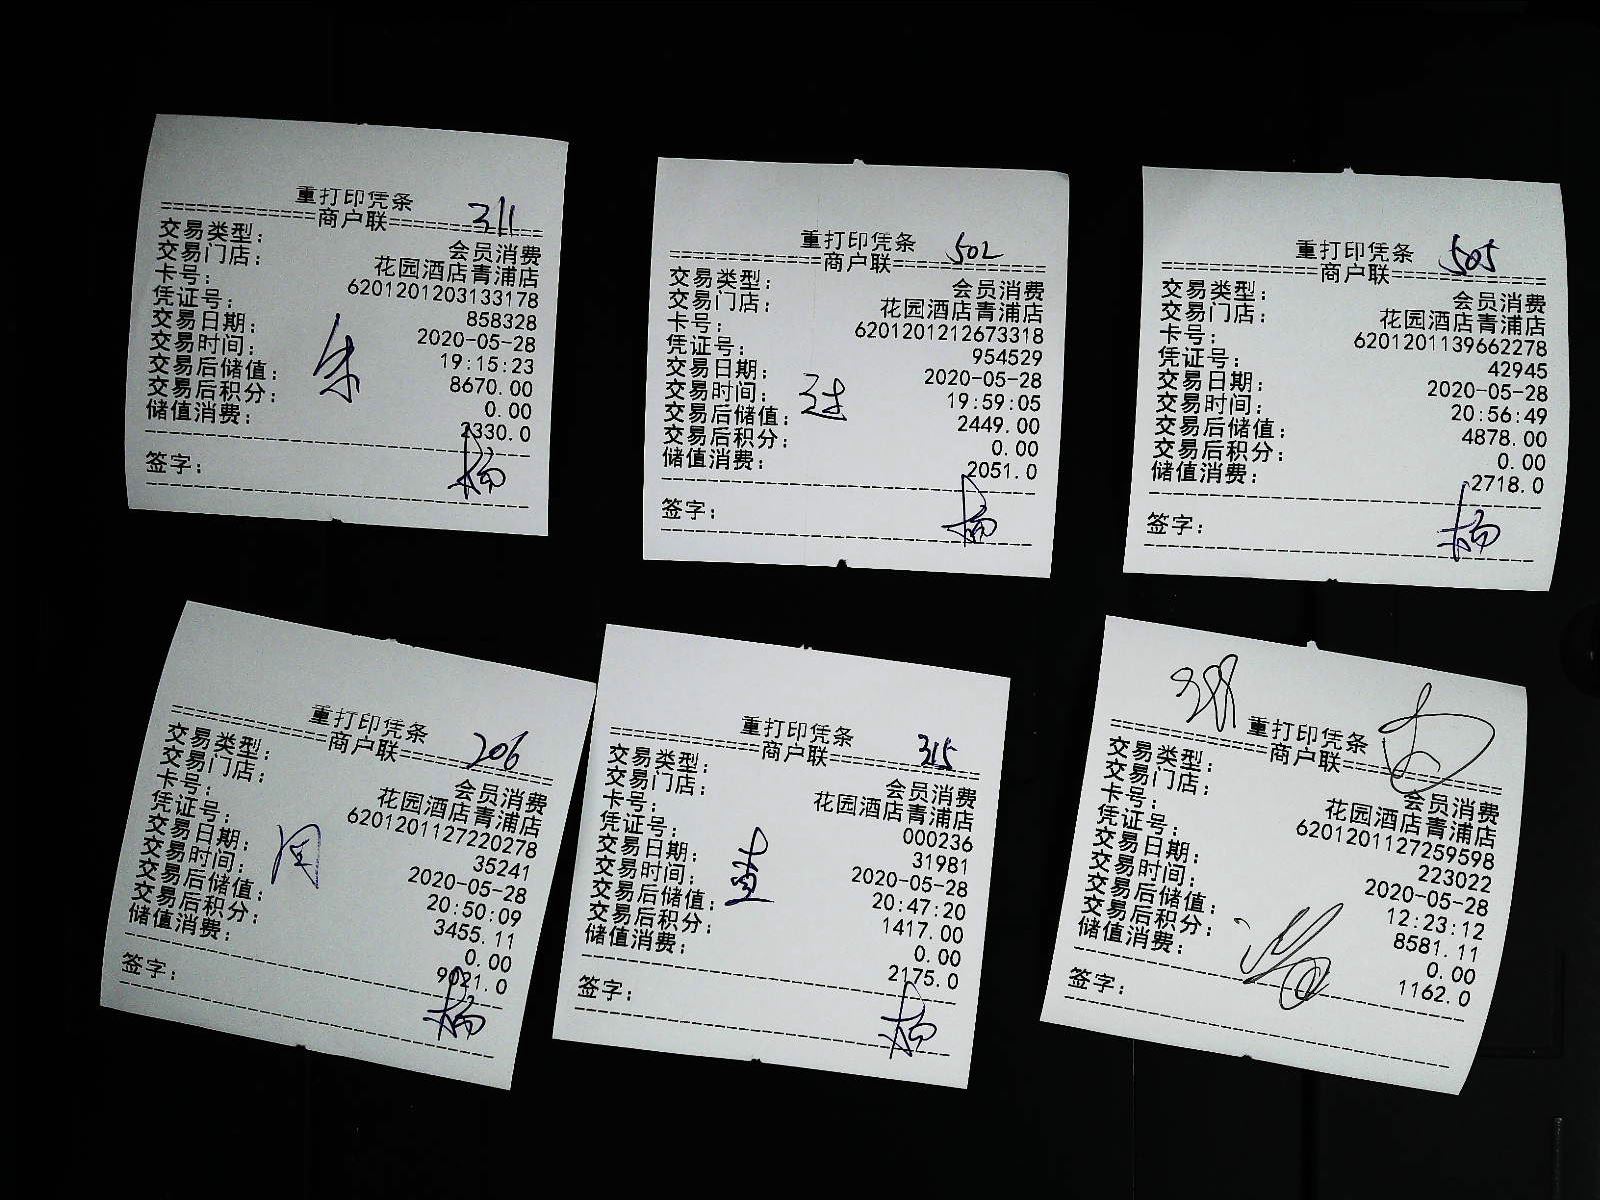 重打印凭条
311
============商户联============
交易类型: 会员消费
交易门店: 花园酒店青浦店
卡号: 6201201203133178
凭证号: 858328
交易日期: 2020-05-28
交易时间: 19:15:23
交易后储值: 8670.00
交易后积分: 0.00
储值消费: 2330.0
朱
签字: 杨
重打印凭条
502
============商户联============
交易类型: 会员消费
交易门店: 花园酒店青浦店
卡号: 6201201212673318
凭证号: 954529
交易日期: 2020-05-28
交易时间: 19:59:05
交易后储值: 2449.00
交易后积分: 0.00
储值消费: 2051.0
签字: 杨
重打印凭条
505
============商户联============
交易类型: 会员消费
交易门店: 花园酒店青浦店
卡号: 6201201139662278
凭证号: 42945
交易日期: 2020-05-28
交易时间: 20:56:49
交易后储值: 4878.00
交易后积分: 0.00
储值消费: 2718.0
签字: 杨
重打印凭条
206
============商户联============
交易类型: 会员消费
交易门店: 花园酒店青浦店
卡号: 6201201127220278
凭证号: 35241
交易日期: 2020-05-28
交易时间: 20:50:09
交易后储值: 3455.11
交易后积分: 0.00
储值消费: 9021.0
签字: 杨
重打印凭条
315
============商户联============
交易类型: 会员消费
交易门店: 花园酒店青浦店
卡号: 000236
凭证号: 31981
交易日期: 2020-05-28
交易时间: 20:47:20
交易后储值: 1417.00
交易后积分: 0.00
储值消费: 2175.0
签字: 杨
重打印凭条
============商户联============
交易类型: 会员消费
交易门店: 花园酒店青浦店
卡号: 6201201127259598
凭证号: 223022
交易日期: 2020-05-28
交易时间: 12:23:12
交易后储值: 8581.11
交易后积分: 0.00
储值消费: 1162.0
签字: